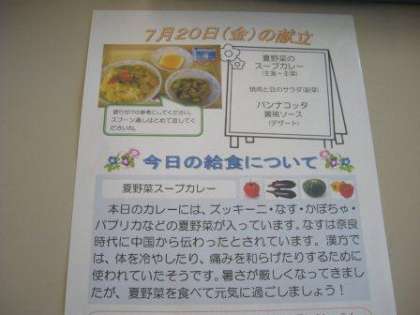 7月20日(金)の献立
夏野菜の
スープカレー
(主食・主菜)
焼肉と豆のサラダ(副菜)
パンナコッタ
ソース
(デザート)
スプーン
今日の給食について
夏野菜スープカレー
本日のカレーには、ズッキーニ・なす・かぼちゃ・
パプリカなどの夏野菜が入っています。なすは奈良
時代に中国から伝わったとされています。漢方で
は、体を冷やしたり、痛みを和らげたりするために
使われていたそうです。暑さが厳しくなってきました
が、夏野菜を食べて元気に過ごしましょう!